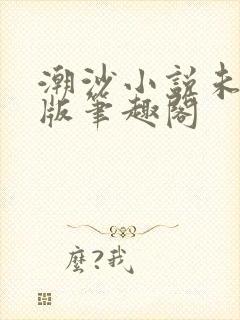 潮沙小説未
版筆趣閣
麼?我